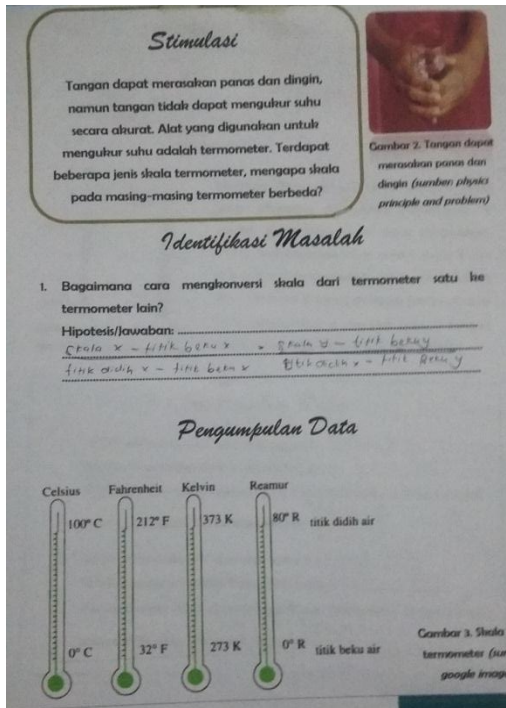 Stimulasi
Tangan dapat merasakan panas dan dingin,
namun tangan tidak dapat mengukur suhu
secara akurat. Alat yang digunakan untuk
mengukur suhu adalah termometer. Terdapat
beberapa jenis skala termometer, mengapa skala
pada masing-masing termometer berbeda?
Gambar 2. Tangan dapat
merasakan panas dan
dingin (sumber: physics
principle and problem)
Identifikasi Masalah
1. Bagaimana cara mengkonversi skala dari termometer satu ke
termometer lain?
Hipotesis/Jawaban:
Skala x - titik beku x = Skala y - titik beku y
titik didih x - titik beku x titik didih x - titik Beku y
Pengumpulan Data
Celsius Fahrenheit Kelvin Reamur
100° C 212° F 373 K 80° R titik didih air
0° C 32° F 273 K 0° R titik beku air
Gambar 3. Skala
termometer
google